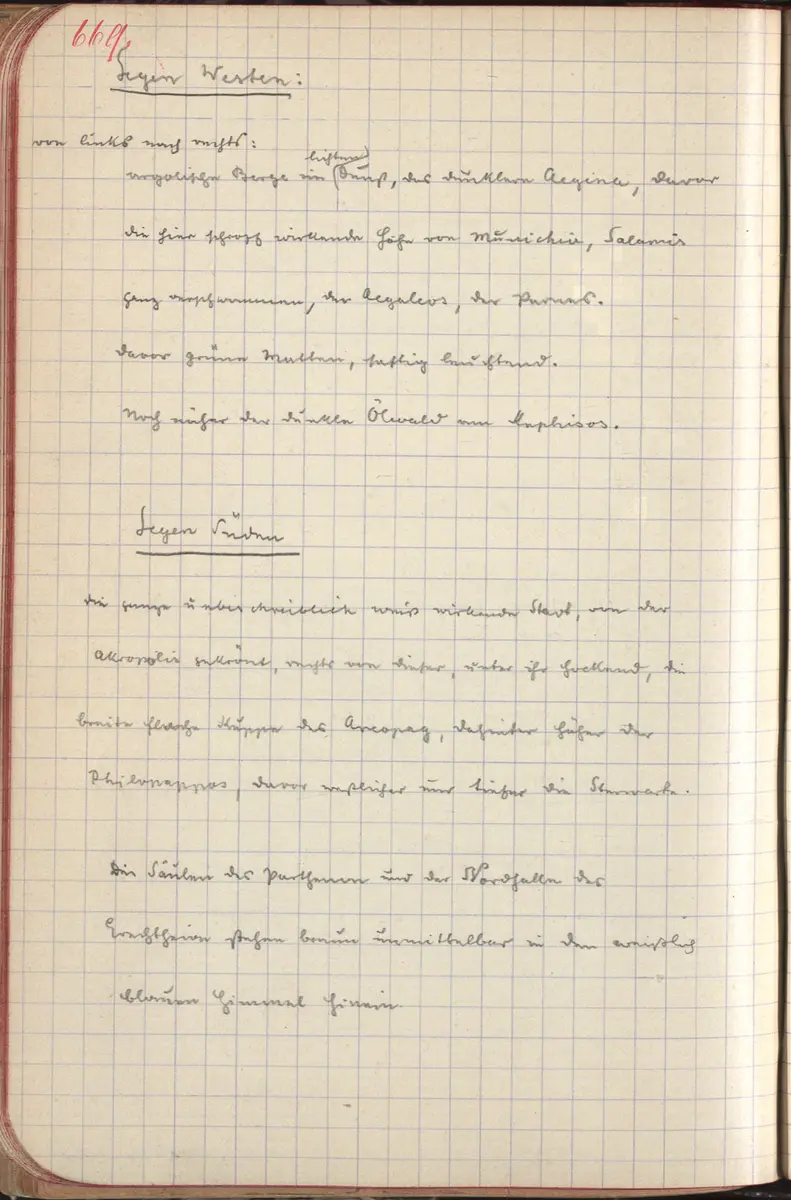 669.
Gegen Westen:
von links nach rechts:
lichten
argolische Berge im Dunst, das dunklere Aegina, davor
die hier schroff wirkende Höhe von Munichia, Salamis
ganz verschwommen, der Aegaleos, der Parnes.
davor grüne Matten, saftig leuchtend.
Noch näher der dunkle Ölwald am Kephisos.
Gegen Süden
die ganze unbeschreiblich weiß wirkende Stadt, von der
Akropolis gekrönt, rechts von dieser, unter ihr hockend, die
breite flache Kuppe des Areopag, dahinter höher der
Philopappos, davor westlicher und tiefer die Sternwarte.
Die Säulen des Parthenon und der Nordhalle des
Erechtheion stehen braun unmittelbar in den weißlich
blauen Himmel hinein.